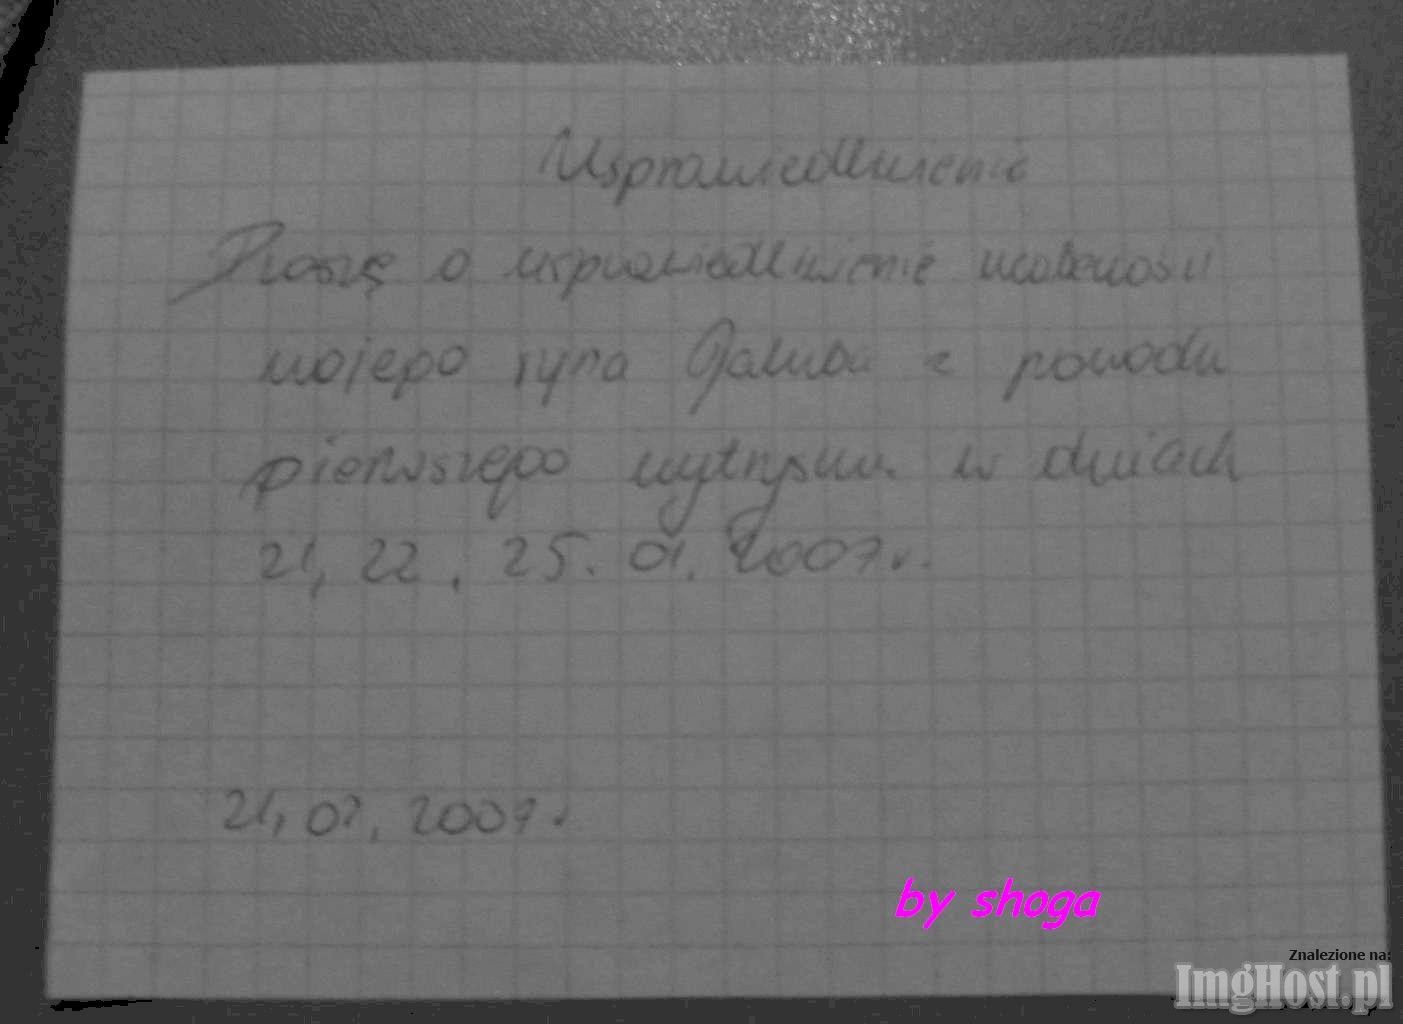 Usprawiedliwienie
Proszę o usprawiedliwienie nieobecności
mojego syna Jakuba z powodu
pierwszego wytrysku w dniach
21, 22, 25.01.2007r.
21,02,2007r
by shoga
Znalezione na:
ImgHost.pl